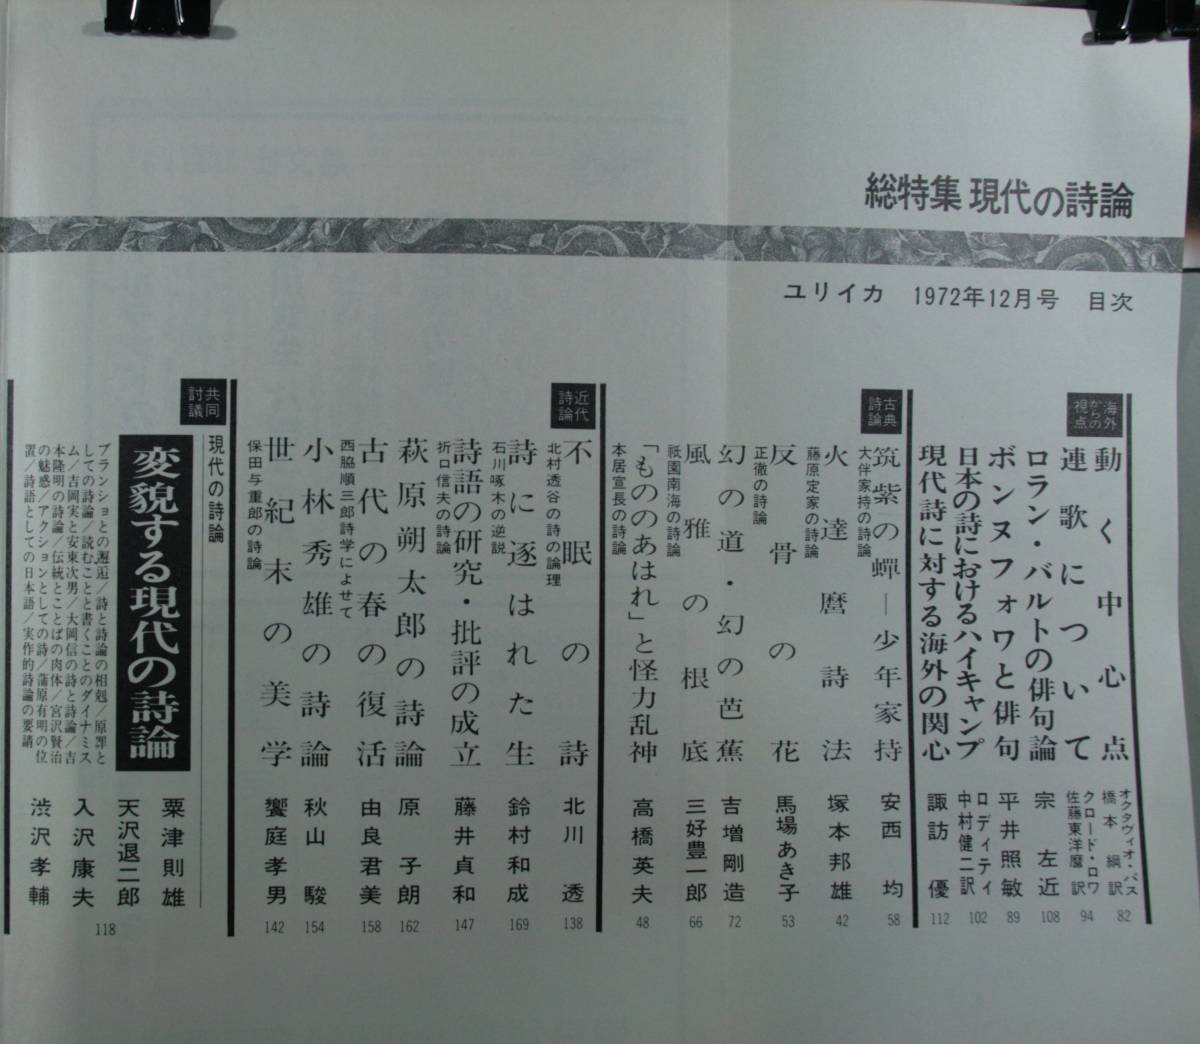 総特集 現代の詩論
ユリイカ 1972年12月号 目次
海外からの視点
動く中心点 オクタヴィオ・パス 橋本綱訳 82
連歌について クロード・ロワ 佐藤東洋麿訳 94
ロラン・バルトの俳句論 宗左近 108
ボンヌフォワと俳句 平井照敏 89
日本の詩におけるハイキャンプ ロディティ 中村健二訳 102
現代詩に対する海外の関心 諏訪優 112
古典詩論
筑紫の蟬―少年家持 安西均 58
大伴家持の詩論
火達麿詩法 塚本邦雄 42
藤原定家の詩論
反骨の花 馬場あき子 53
正徹の詩論
幻の道・幻の芭蕉 吉増剛造 72
風雅の根底 三好豊一郎 66
祇園南海の詩論
「もののあはれ」と怪力乱神 高橋英夫 48
本居宣長の詩論
近代詩論
不眠の詩 北川透 138
北村透谷の詩の論理
詩に逐はれた生 鈴村和成 169
石川啄木の逆説
詩語の研究・批評の成立 藤井貞和 147
折口信夫の詩論
萩原朔太郎の詩論 原子朗 162
古代の春の復活 由良君美 158
西脇順三郎詩学によせて
小林秀雄の詩論 秋山駿 154
世紀末の美学 饗庭孝男 142
保田与重郎の詩論
共同討議
現代の詩論
変貌する現代の詩論
粟津則雄
天沢退二郎
入沢康夫
渋沢孝輔
118
ブランショとの邂逅/詩と詩論の相剋/原罪と
しての詩論/読むことと書くことのダイナミス
ム/吉岡実と安東次男/大岡信の詩と詩論/吉
本隆明の詩論/伝統とことばの肉体/宮沢賢治
の魅惑/アクションとしての詩/蒲原有明の位
置/詩語としての日本語/実作的詩論の要請